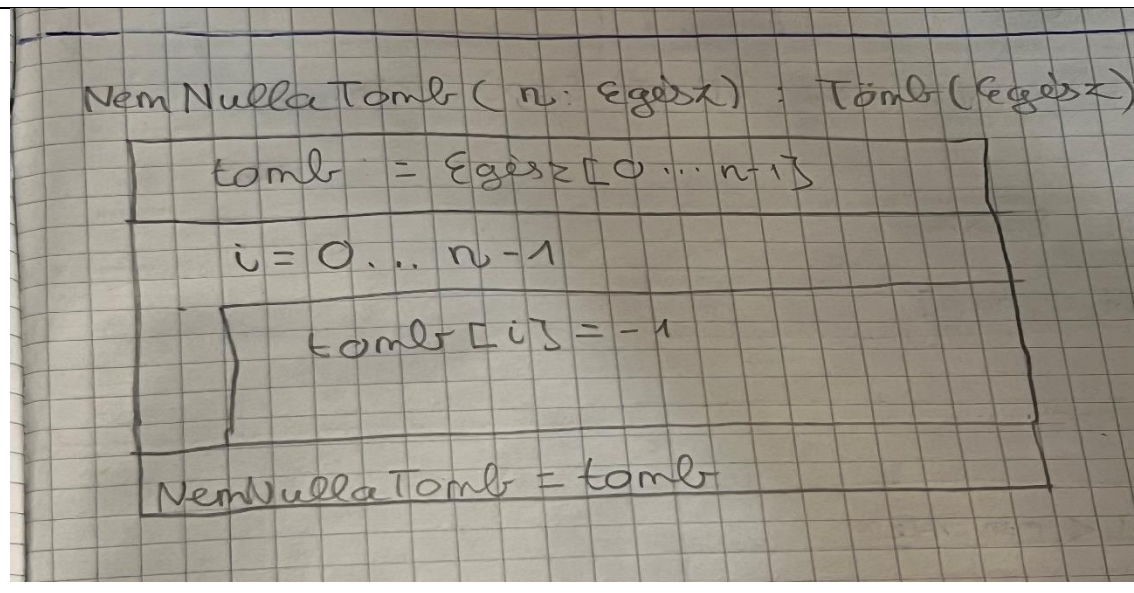 NemNullaTomb(n: Egész): Tömb(Egész)
tomb = Egész[0...n-1]
i = 0... n-1
tomb[i] = -1
NemNullaTomb = tomb